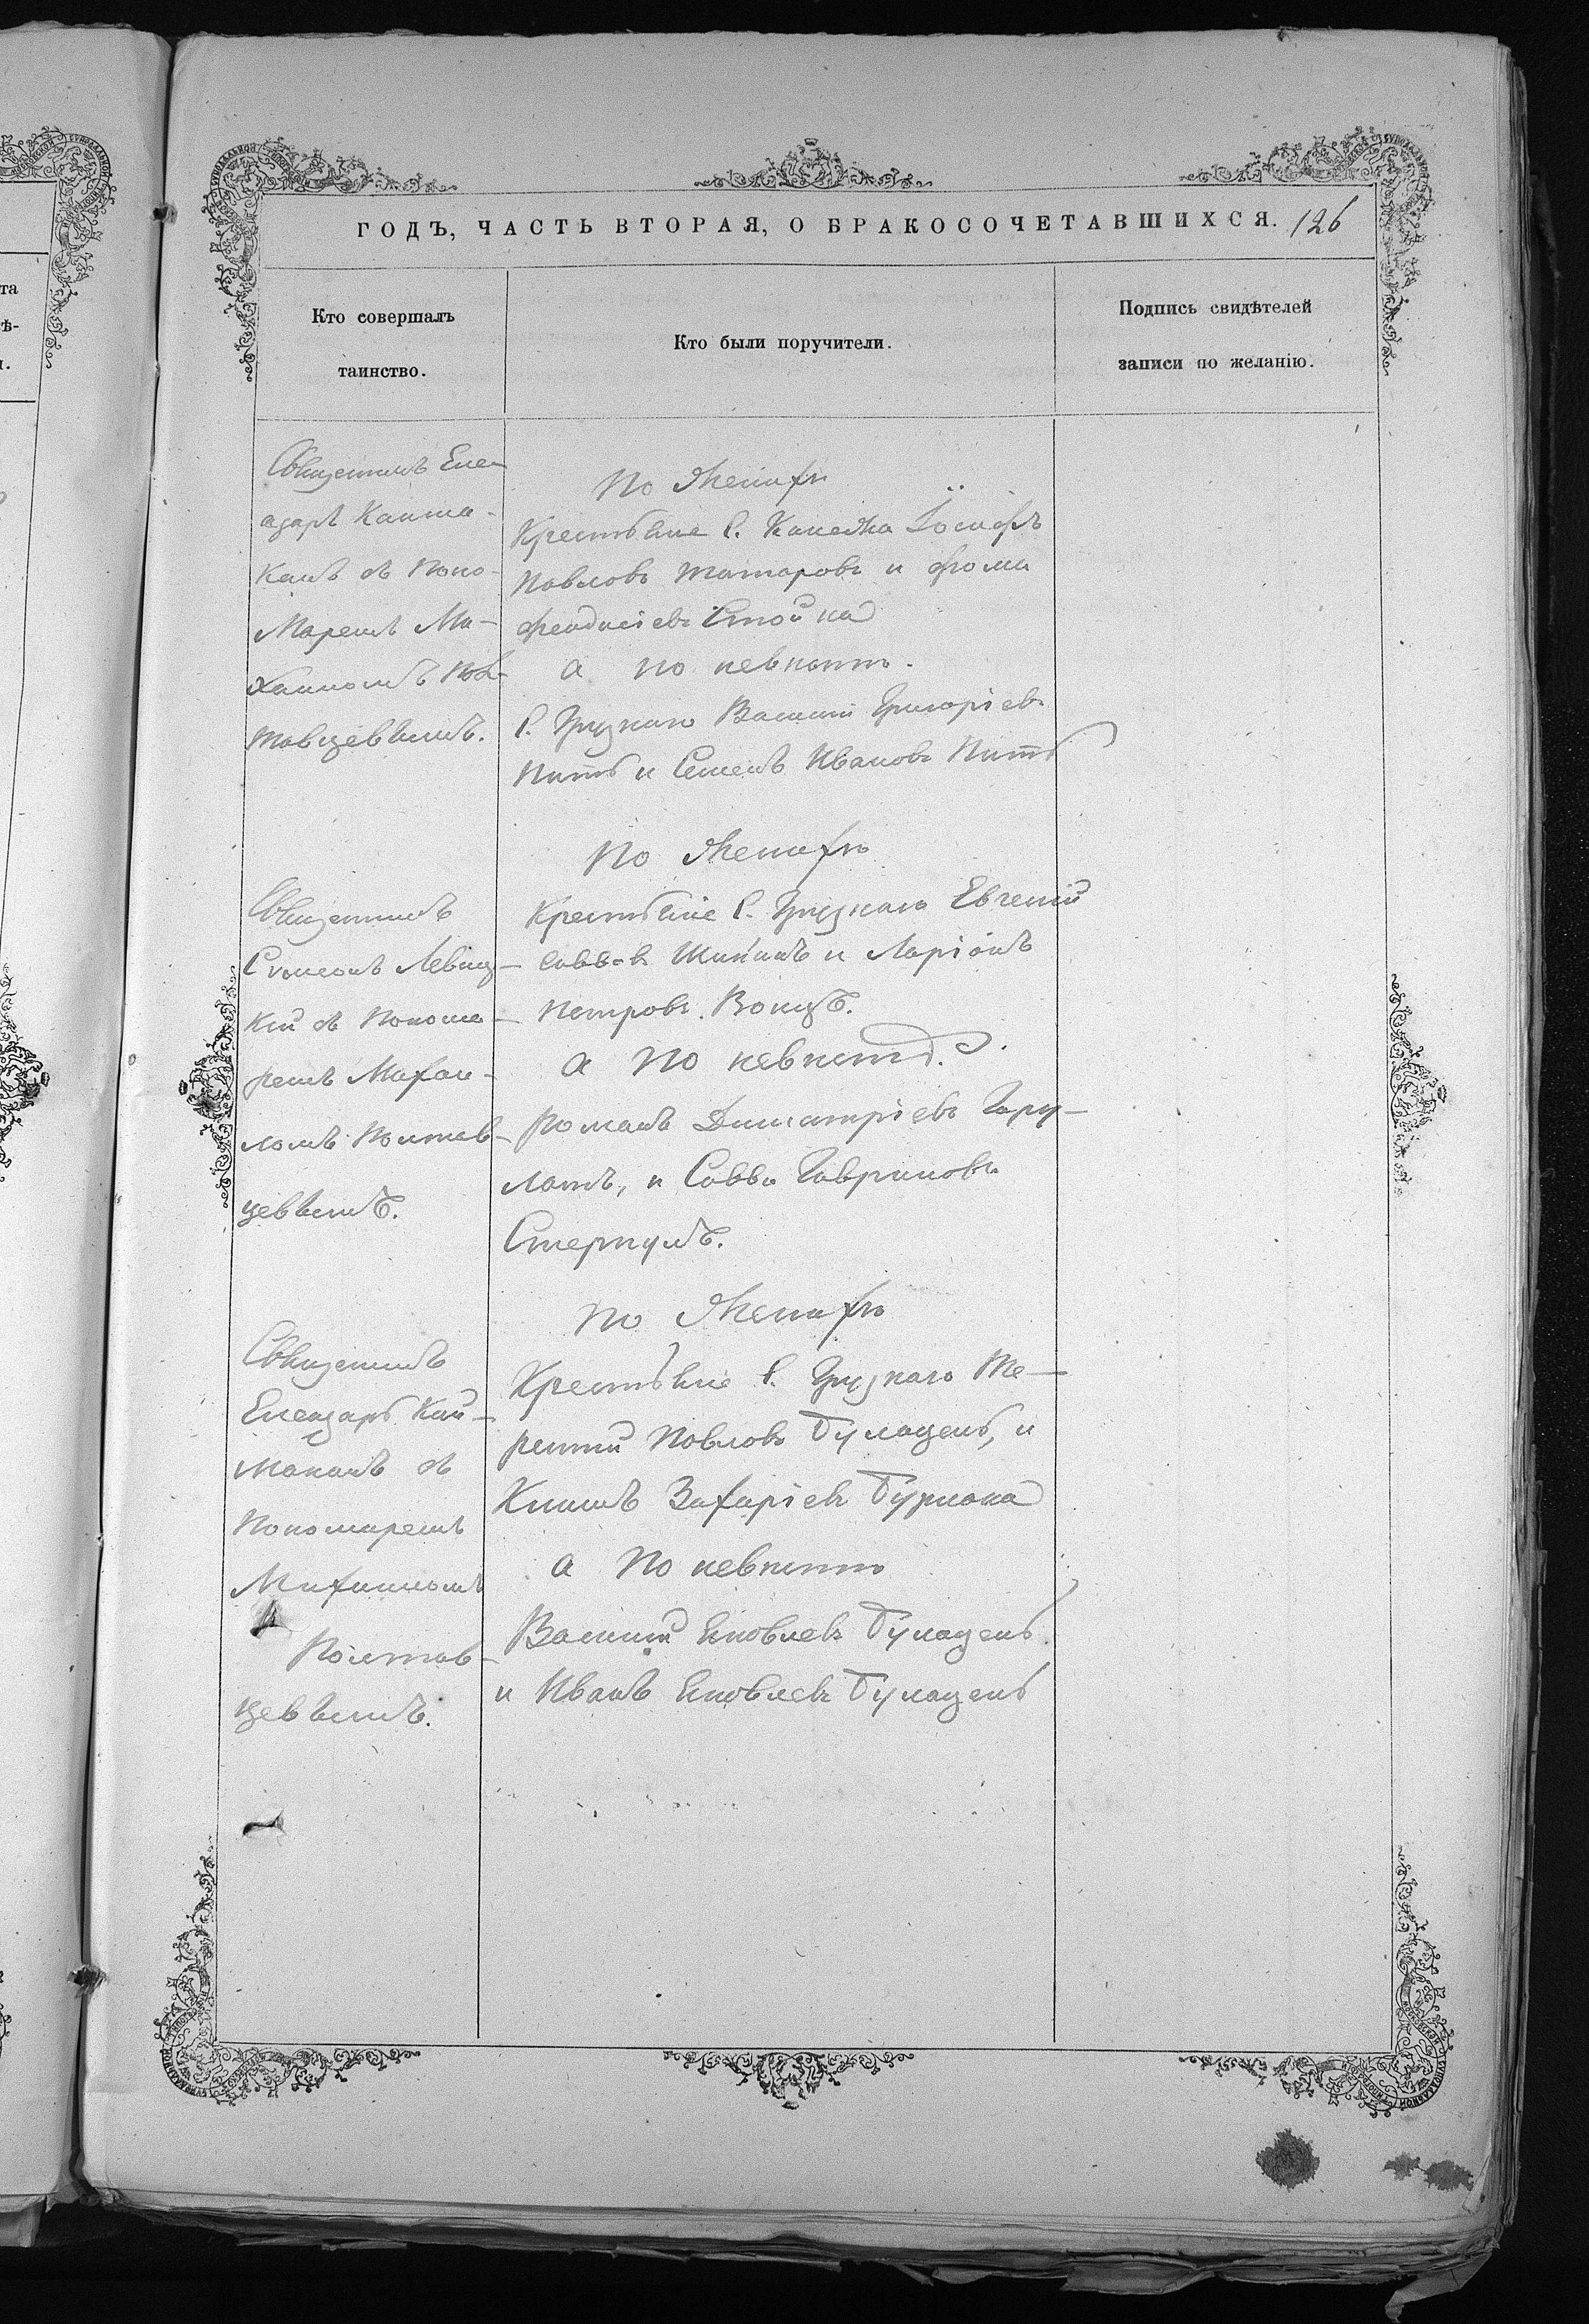 ГОДЪ, ЧАСТЬ ВТОРАЯ, О БРАКОСОЧЕТАВШИХСЯ. 126
Кто совершалъ
таинство.
Кто были поручители.
Подпись свидѣтелей
записи по желанію.
та
ѣ-
Священникъ Еле-
азаръ Кайма-
канъ съ Поно-
маремъ Ми-
хаиломъ Пол-
тавцевымъ.
По женихѣ
Крестьяне с. Іосифъ
Павловъ Татаровъ и Фома
Стойка
а по невѣстѣ.
с. Грузкаго Василій Григоріевъ
и Семенъ Ивановъ
Священникъ
Симеонъ Левиц-
кій съ Понома-
ремъ Михаи-
ломъ Полтав-
цевымъ.
По женихѣ
Крестьяне с. Грузкаго Евгеній
Саввовъ и Ларіонъ
Петровъ
а по невѣстѣ.
Романъ Димитріевъ
и Савва Гавриловъ
Священникъ
Елеазаръ Кай-
маканъ съ
Пономаремъ
Михаиломъ
Полтав-
цевымъ.
По женихѣ
Крестьяне с. Грузкаго Те-
рентій Павловъ Булацень, и
Климъ Захаріевъ Бурлака
а по невѣстѣ
Василій Яковлевъ Булацень
и Иванъ Яковлевъ Булацень